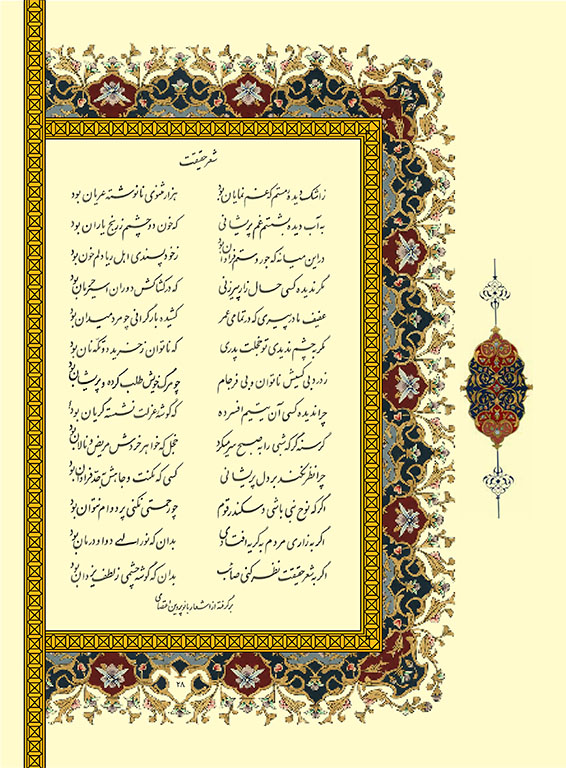 شعر حقیقت
ز اشک دیده مستم که غم نمایان بود هزار مثنوی نانوشته عریان بود
به آب دیده بشستم غم پریشانی که خون دو چشم ز رنج یاران بود
در این میانه که جور و ستم فراوان بود ز خودپسندی اهل ریا دلم خون بود
مگر ندیده کسی حال زار پیرزنی که در کشاکش دوران اسیر حرمان بود
عفیف مادر پیری که در تمامی عمر کشیده بار گرانی چو مرد میدان بود
مگر به چشم ندیدی تو خجلت پدری که ناتوان ز خرید دو تکه نان بود
ز درد بی کسیش ناتوان و بی فرجام چو مرگ خویش طلب کرده و پریشان بود
چرا ندیده کسی آن یتیم افسرده که گوشه عزلت نشسته گریان بود
گرسنه گر که شبی را به صبح سر میکرد خجل که خواهر خردش مریض و نالان بود
چرا نظر نکند بر دل پریشانی کسی که مکنت و جاهش به حد فراوان بود
اگر که نوح نبی باشی و سکندر قوم چو رحمتی نکنی بر دوام نتوان بود
اگر به زاری مردم به گریه افتادی بدان که نور الهی دوا و درمان بود
اگر به شعر حقیقت نظر کنی صائب بدان که گوشه چشمی ز لطف یزدان بود
برگرفته از اشعار بانو پروین اعتصامی
۲۸